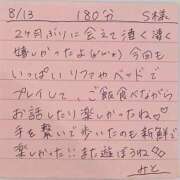 8/13 180分 S様
2ヶ月ぶりに会えて凄く凄く
嬉しかったよ(//∇//) 今回も
いっぱいソファやベッドで
プレイして、ご飯食べながら
お話したい!楽しかったね♡
手を繋いで歩いたのも新鮮で
楽しかった!!また遊ぼうね♡
みと